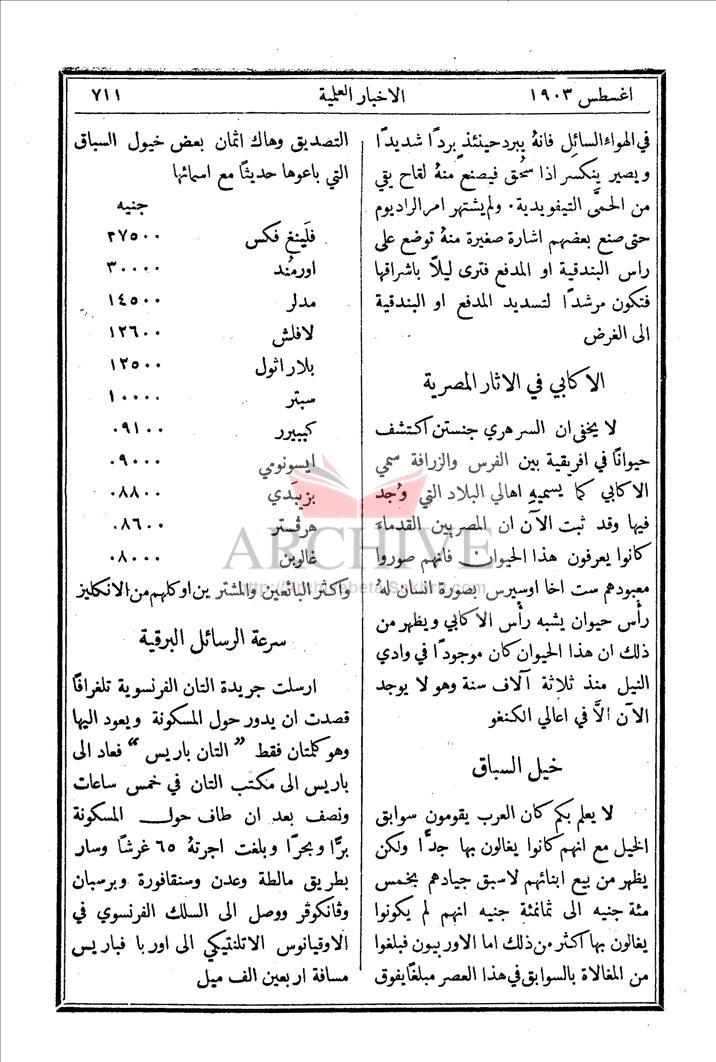 اغسطس ١٩٠٣
الاخبار العلمية
٧١١
في الهواء السائل فانهُ يبرد حينئذٍ بردًا شديدًا
ويصير ينكسر اذا سُحق فيصنع منهُ لقاح يقي
من الحمَّى التيفويدية. ولم يشتهر امر الراديوم
حتى صنع بعضهم اشارة صغيرة منهُ توضع على
راس البندقية او المدفع فترى ليلًا باشراقها
فتكون مرشدًا لتسديد المدفع او البندقية
الى الغرض
الاكابي في الاثار المصرية
لا يخفى ان السر هري جنستن اكتشف
حيوانًا في افريقية بين الفرس والزرافة سمي
الاكابي كما يسميهِ اهالي البلاد التي وُجد
فيها وقد ثبت الآن ان المصريين القدماء
كانوا يعرفون هذا الحيوان فانهم صوروا
معبودهم ست اخا اوسيرس بصورة انسان لهُ
رأس حيوان يشبه رأس الاكابي ويظهر من
ذلك ان هذا الحيوان كان موجودًا في وادي
النيل منذ ثلاثة آلاف سنة وهو لا يوجد
الآن الاَّ في اعالي الكنغو
خيل السباق
لا يعلم بكم كان العرب يقومون سوابق
الخيل مع انهم كانوا يغالون بها جدًّا ولكن
يظهر من بيع ابنائهم لاسبق جيادهم بخمس
مئة جنيه الى ثمانمئة جنيه انهم لم يكونوا
يغالون بها اكثر من ذلك اما الاوربيون فبلغوا
من المغالاة بالسوابق في هذا العصر مبلغًا يفوق
التصديق وهاك اثمان بعض خيول السباق
التي باعوها حديثًا مع اسمائها
جنيه
فلَينغ فكس ٣٧٥٠٠
اورمُند ٣٠٠٠٠
مدلر ١٤٥٠٠
لافلش ١٢٦٠٠
بلار اثول ١٢٥٠٠
سبتر ١٠٠٠٠
كيبيرر ٠٩١٠٠
ايسونومي ٠٩٠٠٠
بزيبَدي ٠٨٨٠٠
هرڤستر ٠٨٦٠٠
غالوين ٠٨٠٠٠
واكثر البائعين والمشترين او كلهم من الانكليز
سرعة الرسائل البرقية
ارسلت جريدة التان الفرنسوية تلغرافًا
قصدت ان يدور حول المسكونة ويعود اليها
وهو كلمتان فقط "التان باريس" فعاد الى
باريس الى مكتب التان في خمس ساعات
ونصف بعد ان طاف حول المسكونة
برًّا وبحرًا وبلغت اجرتهُ ٦٥ غرشًا وسار
بطريق مالطة وعدن وسنقافورة وبرسبان
وڤانكوڤر ووصل الى السلك الفرنسوي في
الاوقيانوس الاتلنتيكي الى اوربا فباريس
مسافة اربعين الف ميل
ARCHIVE